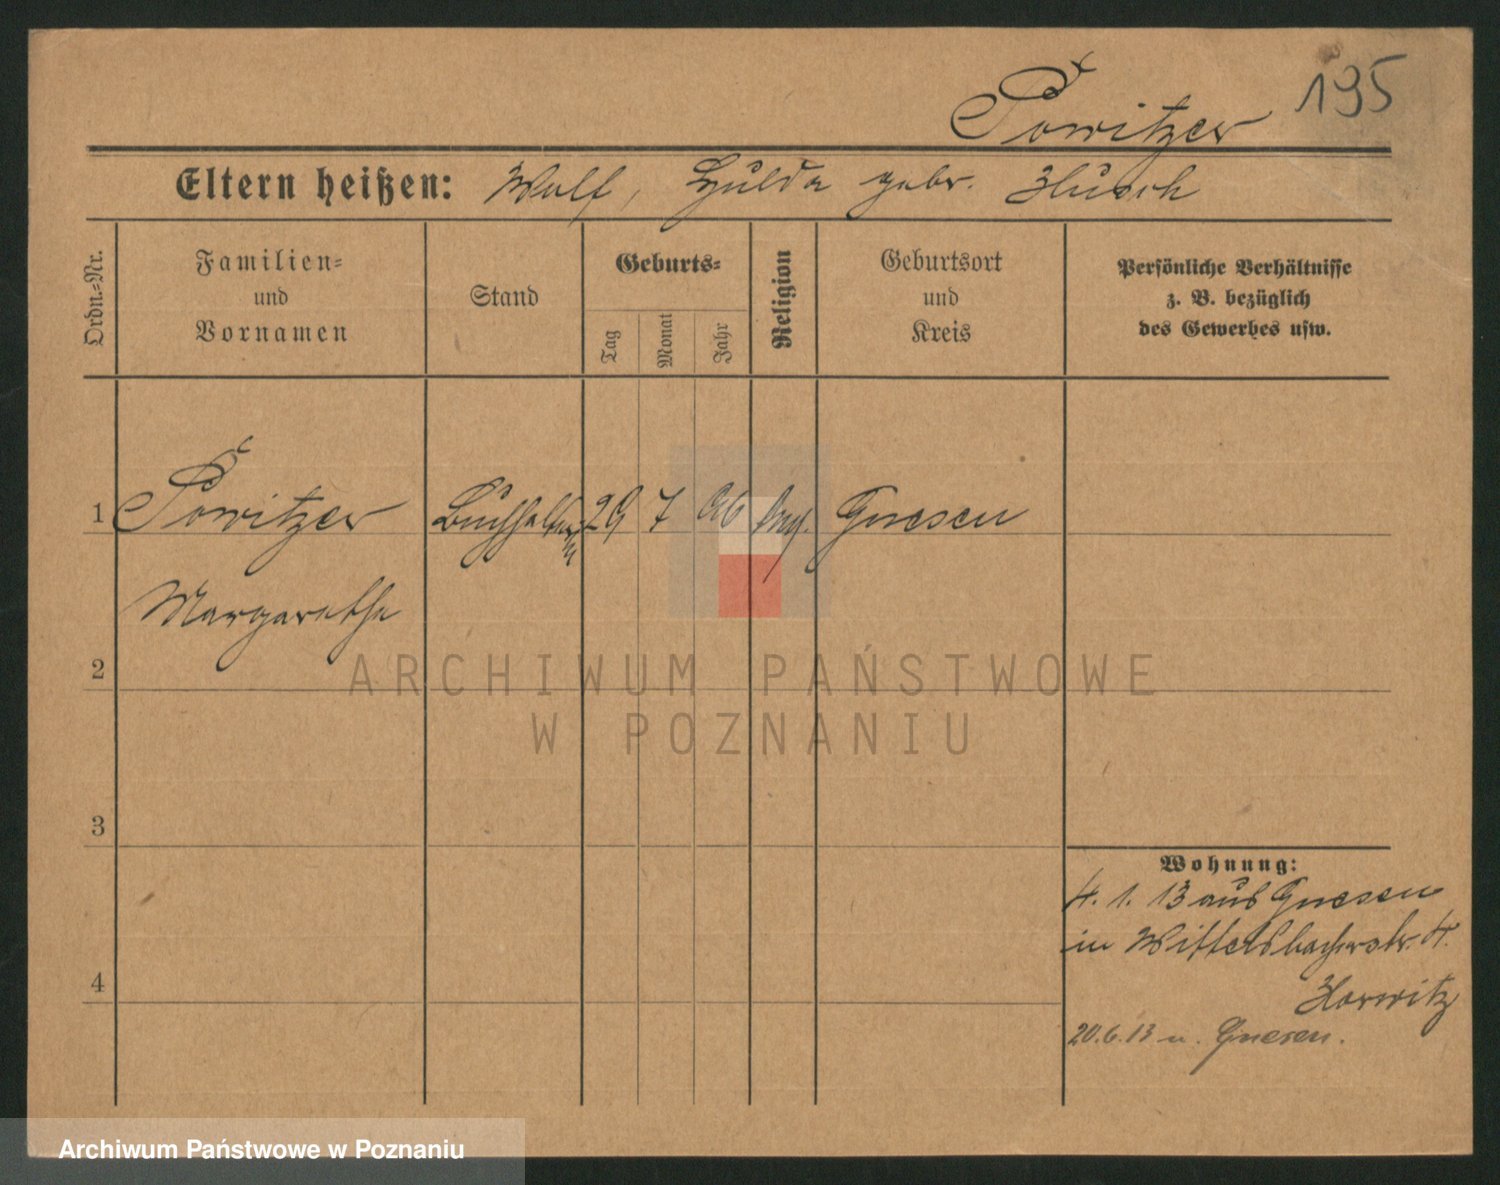 Powitzer 195
Eltern heißen: Wolf, Hulda gebr.
Ordn.-Nr.
Familien-
und
Vornamen
Stand
Geburts-
Tag
Monat
Jahr
Religion
Geburtsort
und
Kreis
Persönliche Verhältnisse
z. B. bezüglich
des Gewerbes usw.
1 Powitzer 29 7 96 Gnesen
Margarethe
2
3
4
Wohnung:
4. 1. 13 aus Gnesen
in Wittelsbacherstr. 4.
Horwitz
20.6.13 n. Gnesen.
ARCHIWUM PAŃSTWOWE
W POZNANIU
Archiwum Państwowe w Poznaniu